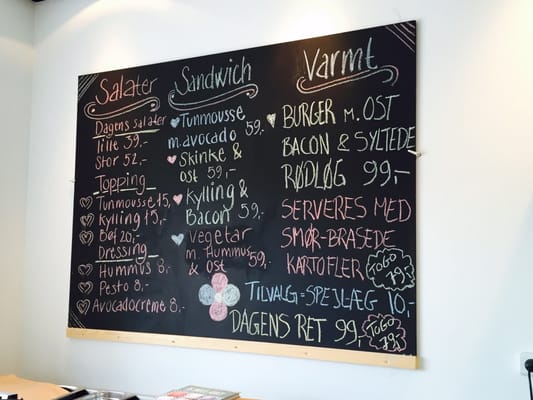 Salater
Dagens salater
Lille 39,-
Stor 52,-
Topping
Tunmousse 15,
Kylling 15,-
Bøf 20,-
Dressing
Hummus 8,-
Pesto 8,-
Avocadocreme 8,-
Sandwich
Tunmousse
m. avocado 59,-
Skinke &
ost 59,-
Kylling &
Bacon 59,-
Vegetar
m. Hummus
& Ost 59,-
Varmt
BURGER M. OST
BACON & SYLTEDE
RØDLØG 99,-
SERVERES MED
SMØR-BRASEDE
KARTOFLER
TOGO
79,-
TILVALG = SPEJLÆG 10,-
DAGENS RET 99,-
TOGO
79,-